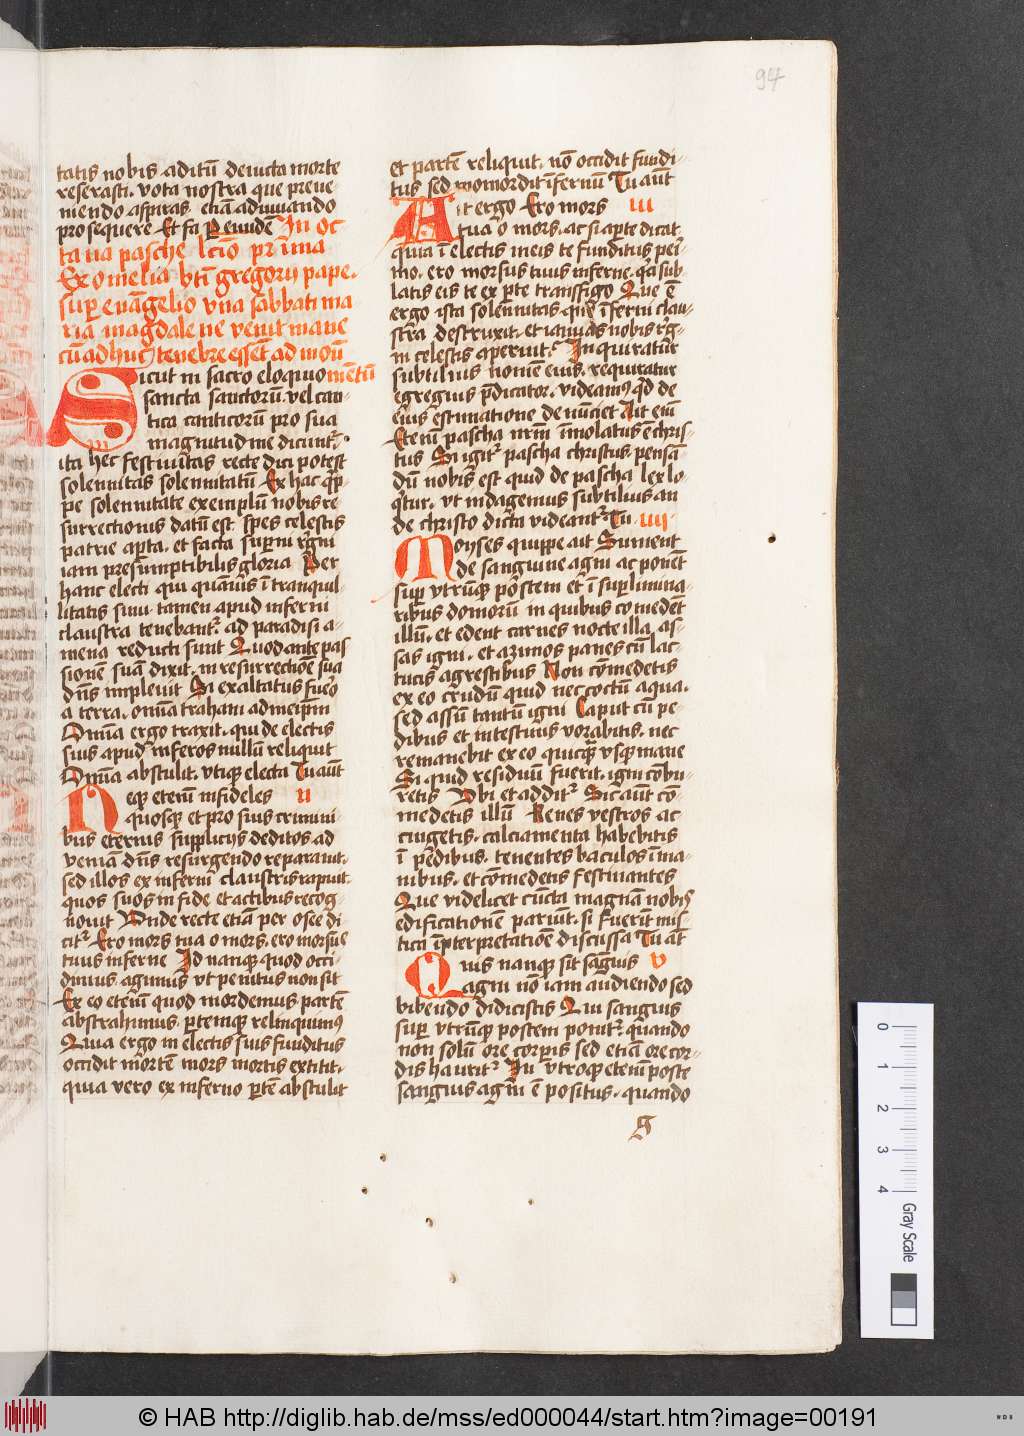 94
tatis nobis aditū deuicta morte
reserasti. vota nostra que preue-
niendo aspiras. etiā adiuuando
prosequere Et fa Reuudē In oc
ta ua pasche lcīo prīma
Ex omelia btī gregorij pape.
suꝑ euāgelio vna sabbati ma
ria magdalene venit mane
cū adhuc tenebre essēt ad monū
Sicut in sacro eloquio mentū
sancta sanctorū. vel can-
tica canticorū pro sua
magnitudine dicunt᷑.
ita hec festiuitas recte dici potest
solennitas solennitatū Ex hac qͥp-
pe solennitate exemplū nobis re
surrectionis datū est. spes celestis
patrie aꝑta. et facta suꝑni rͤgni
iam presumptibilis gloria Per
hanc electi qui quāuis ī tranquil-
litatis sinu tamen apud inferni
claustra tenebant᷑. ad paradisi a-
mena reducti sunt Quod ante pas
sionē suā dixit. in resurrectiōe sua
dn̄s impleuit Si exaltatus fueͬo
a terra. omīa traham ad meip̄m
Omīa ergo traxit. qui de electis
suis apud inferos nullū reliquit
Omīa abstulit. vtiqꝫ electa Tu aūt
Neqꝫ eterū infideles ii
quosqꝫ et pro suis crimini-
bus eternis supplicijs deditos ad
veniā dn̄s resurgendo reparauit.
sed illos ex inferni claustris rapuit.
quos suos in fide et actibus recog-
nouit Vnde recte etiā per osee di
cit᷑ Ero mors tua o mors. ero morsus
tuus inferne Id nanqꝫ quod occi-
dimus agimus vt penitus non sit
Ex eo eterū quod mordemus partē
abstrahimus. ꝑtemqꝫ relinquimꝰ
Quia ergo in electis suis funditus
occidit mortē mors mortis extitit.
quia vero ex inferno ꝑtē abstulit
et partē reliquit. nō occidit fundi-
tus sed momordit īfernū Tu aūt
Ait ergo Ero mors iii
tua o mors. ac si aꝑte dicat
quia ī electis meis te funditus peri-
mo. ero morsus tuus inferne. qͣ sub-
latis eis te ex ꝑte transfigo Que ē
ergo ista solennitas que īferni clau-
stra destruxit. et ianuas nobis rͤg-
ni celestis aperuit. Inquirat᷑
subtilius nomē eius. requiratur
egregius p̄dicator. videamꝰ qͥd de
eiꝰ estimatione denūciet Ait eiū
Etenī pascha nrm̄ īmolatus ē chris-
tus Si igit᷑ pascha christus. pensā-
dū nobis est quid de pascha lex lo-
qͥtur. vt indagemus subtilius an
de christo dicta videant᷑ Tu. iiii.
Moyses quippe ait Sument
de sanguine agni ac ponēt
suꝑ vtrūqꝫ postem et ī suꝑlimina-
ribus domorū in quibus comedēt
illū. et edent carnes nocte illa as-
sas igni. et azimos panes cū lac-
tucis agrestibus Non cōmedetis
ex eo crudū quid nec coctū aqua.
sed assū tantū igni Caput cū pe-
dibus et intestinis vorabitis. nec
remanebit ex eo quicqͣ vsqꝫ mane
Si quid residuū fuerit. igni cōbu-
retis Vbi et addit᷑ Sic aūt cō-
medetis illū Renes vestros ac
cingetis. calciamenta habebitis
ī pedibus. tenentes baculos ī ma-
nibus. et cōmedetis festinantes
Que videlicet cūcta magnā nobis
edificationē pariūt. si fuerīt mis-
tica īterpretatiōe discussa Tu aūt
Quis nanqꝫ sit sāguis v
agni nō iam audiendo sed
bibendo didicistis Qui sanguis
suꝑ vtrūqꝫ postem ponit᷑. quando
non solū ore corporis sed etiā ore cor-
dis haurit᷑ In vtroqꝫ etenī poste
sanguis agni ē positus. quando
Gray Scale
0 1 2 3 4
© HAB http://diglib.hab.de/mss/ed000044/start.htm?image=00191